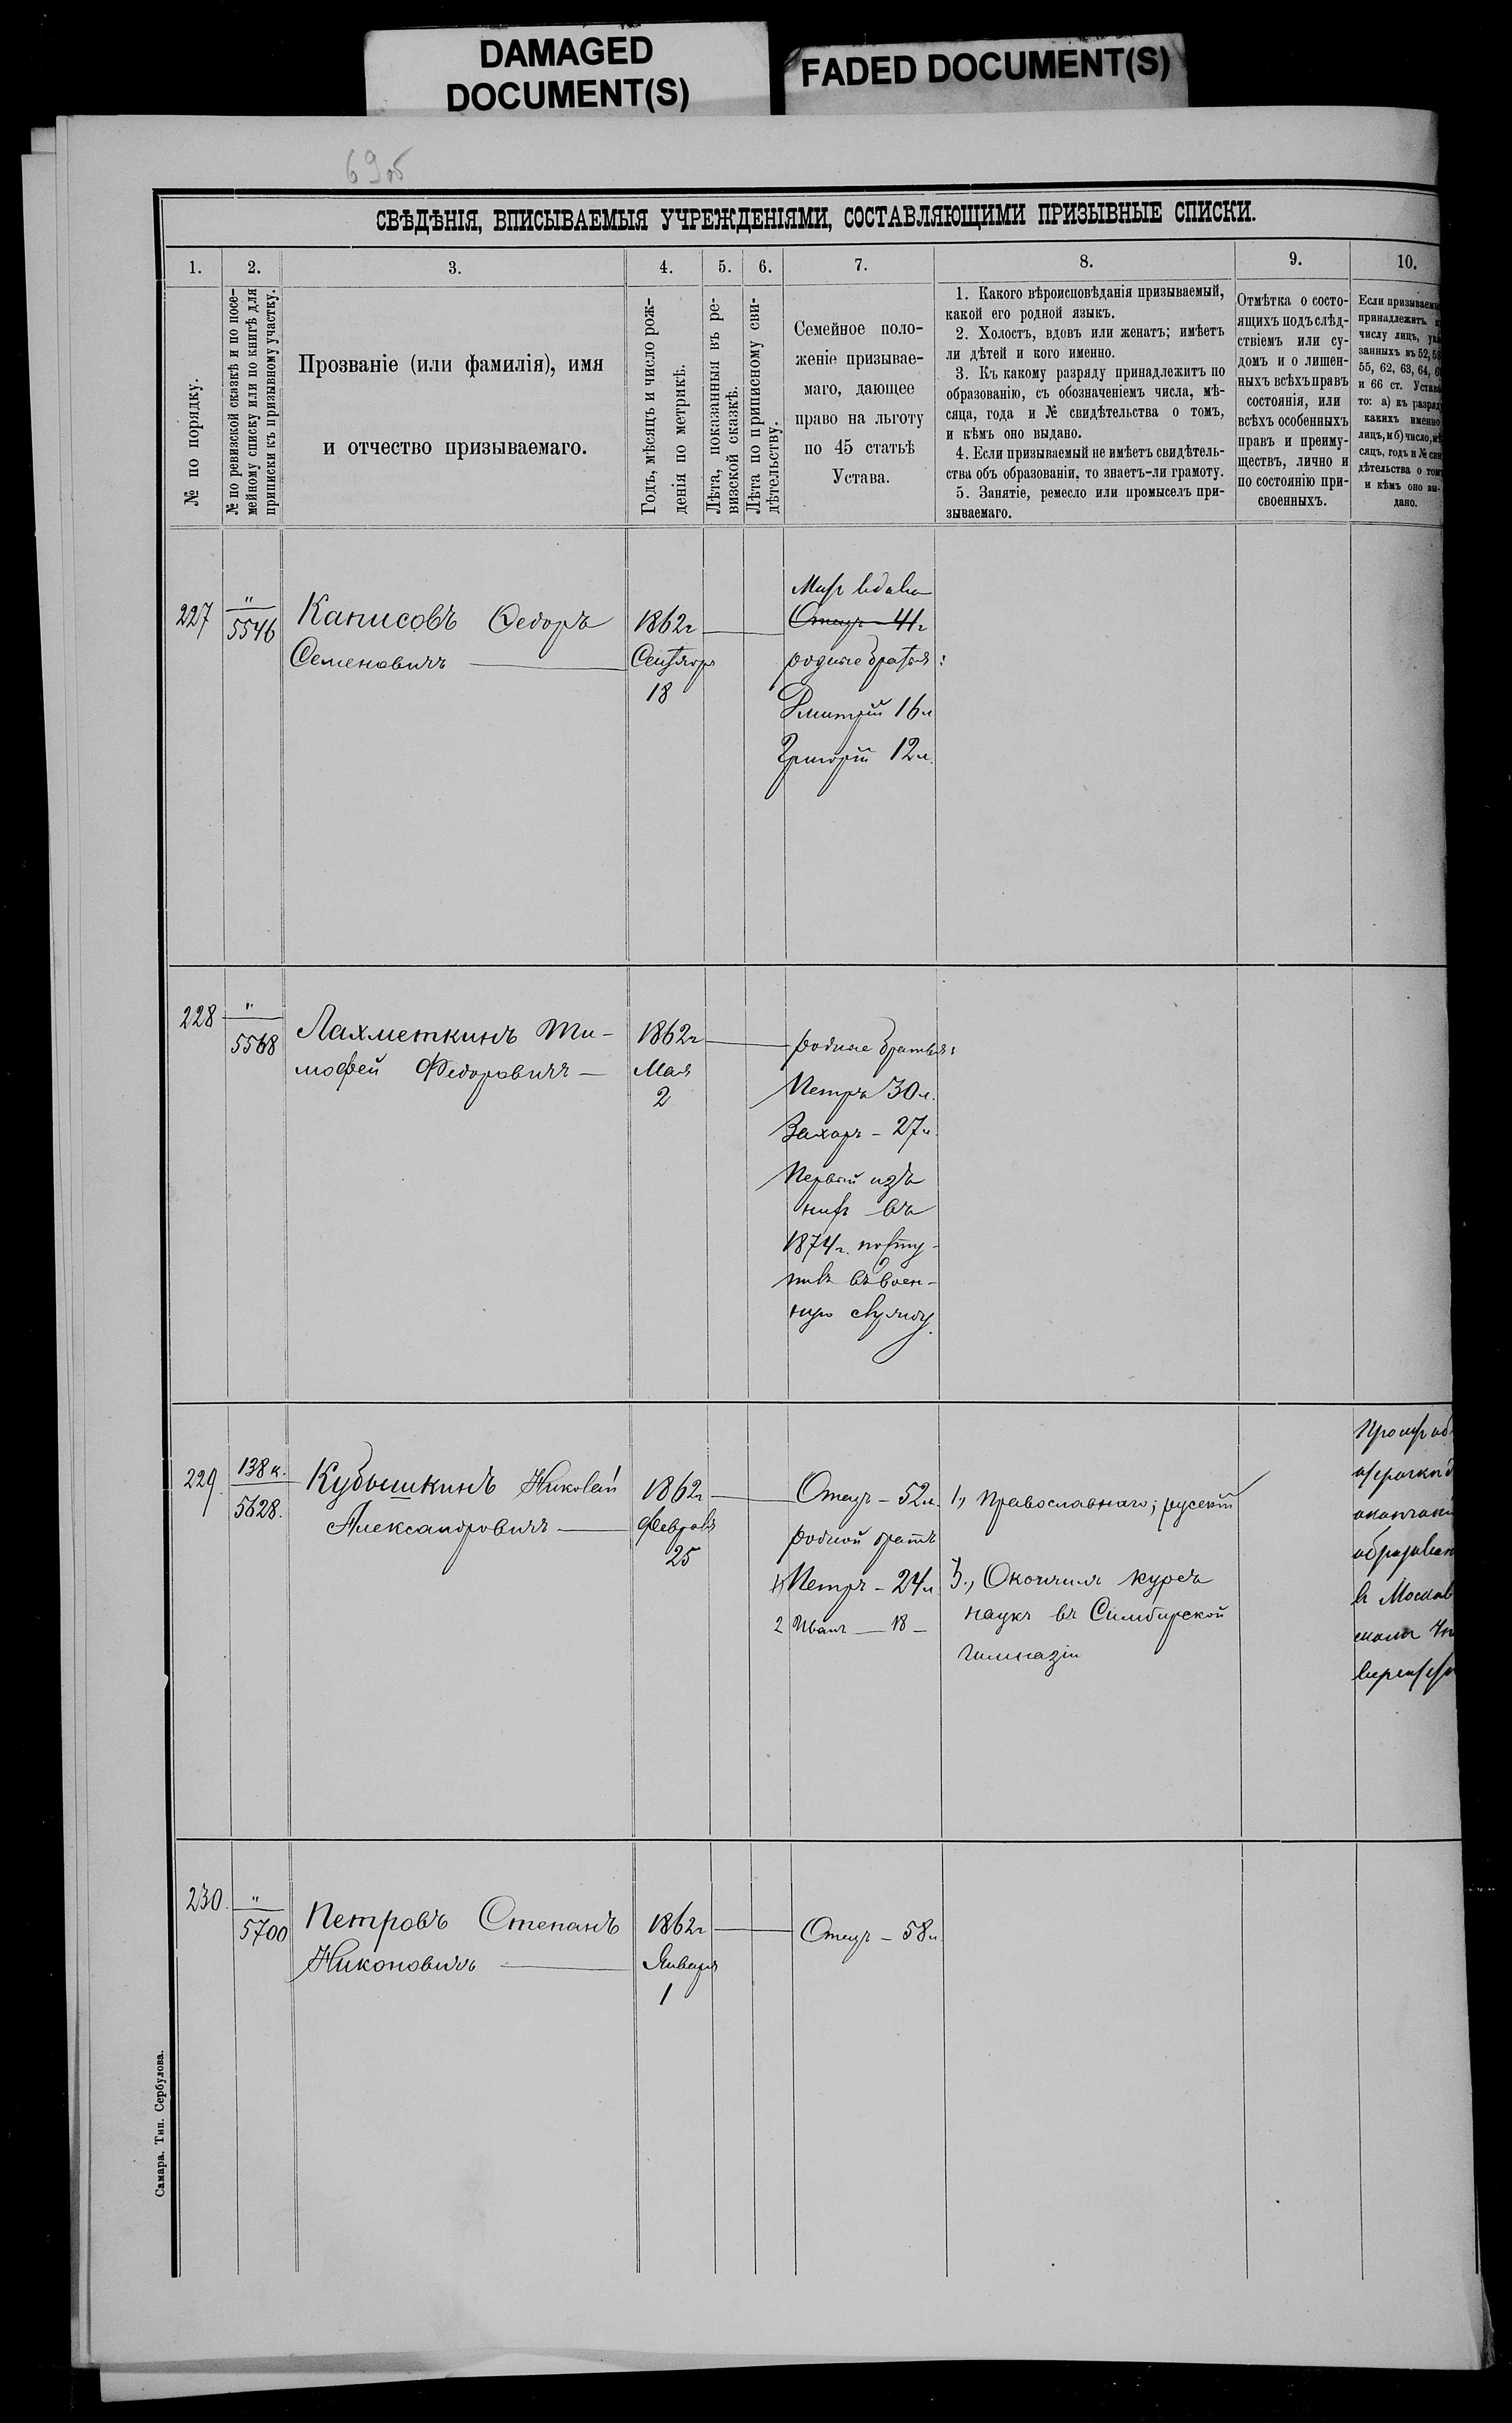 DAMAGED
DOCUMENT(S)
FADED DOCUMENT(S)
69об
СВѢДѢНІЯ, ВПИСЫВАЕМЫЯ УЧРЕЖДЕНІЯМИ, СОСТАВЛЯЮЩИМИ ПРИЗЫВНЫЕ СПИСКИ.
1.
2.
3.
4.
5.
6.
7.
8.
9.
10.
№ по порядку.
№ по ревизской сказкѣ и по посе-
мейному списку или по книгѣ для
приписки къ призывному участку.
Прозваніе (или фамилія), имя
и отчество призываемаго.
Годъ, мѣсяцъ и число рож-
денія по метрикѣ.
Лѣта, показанныя въ ре-
визской сказкѣ.
Лѣта по приписному сви-
дѣтельству.
Семейное поло-
женіе призывае-
маго, дающее
право на льготу
по 45 статьѣ
Устава.
1. Какого вѣроисповѣданія призываемый,
какой его родной языкъ.
2. Холостъ, вдовъ или женатъ; имѣетъ
ли дѣтей и кого именно.
3. Къ какому разряду принадлежитъ по
образованію, съ обозначеніемъ числа, мѣ-
сяца, года и № свидѣтельства о томъ,
и кѣмъ оно выдано.
4. Если призываемый не имѣетъ свидѣтель-
ства объ образованіи, то знаетъ-ли грамоту.
5. Занятіе, ремесло или промыселъ при-
зываемаго.
Отмѣтка о состо-
ящихъ подъ слѣд-
ствіемъ или су-
домъ и о лишен-
ныхъ всѣхъ правъ
состоянія, или
всѣхъ особенныхъ
правъ и преиму-
ществъ, лично и
по состоянію при-
своенныхъ.
Если призываемы
принадлежитъ к
числу лицъ, ука
занныхъ въ 52, 53
55, 62, 63, 64, 6
и 66 ст. Устава
то: а) къ разряд
какихъ именно
лицъ, и б) число, мѣ
сяцъ, годъ и № сви
дѣтельства о томъ
и кѣмъ оно вы-
дано.
227
"
5546
Канисовъ Ѳедоръ
Семеновичъ
1862г
Сентября
18
Мать вдова
Отецъ 41г
родные братья:
Дмитрій 16л
Григорій 12л.
228
"
5568
Лахметкинъ Ти-
мофей Федоровичъ
1862г
Мая
2
родные братья:
Петръ 30л.
Захаръ - 27л.
Первый изъ
нихъ въ
1874г. посту-
пилъ въ воен-
ную службу.
229.
138к.
5628.
Кубышкинъ Николай
Александровичъ
1862г
Февраля
25
Отецъ - 52л.
родной братъ
1) Петръ - 24л
2 Иванъ - 18 -
1., Православнаго; русскій
3., Окончилъ курсъ
наукъ въ Симбирской
гимназіи
окончані
образован
въ Москов
230.
"
5700
Петровъ Степанъ
Никоновичъ
1862г
Января
1
Отецъ - 58л.
Самара. Тип. Сербулова.